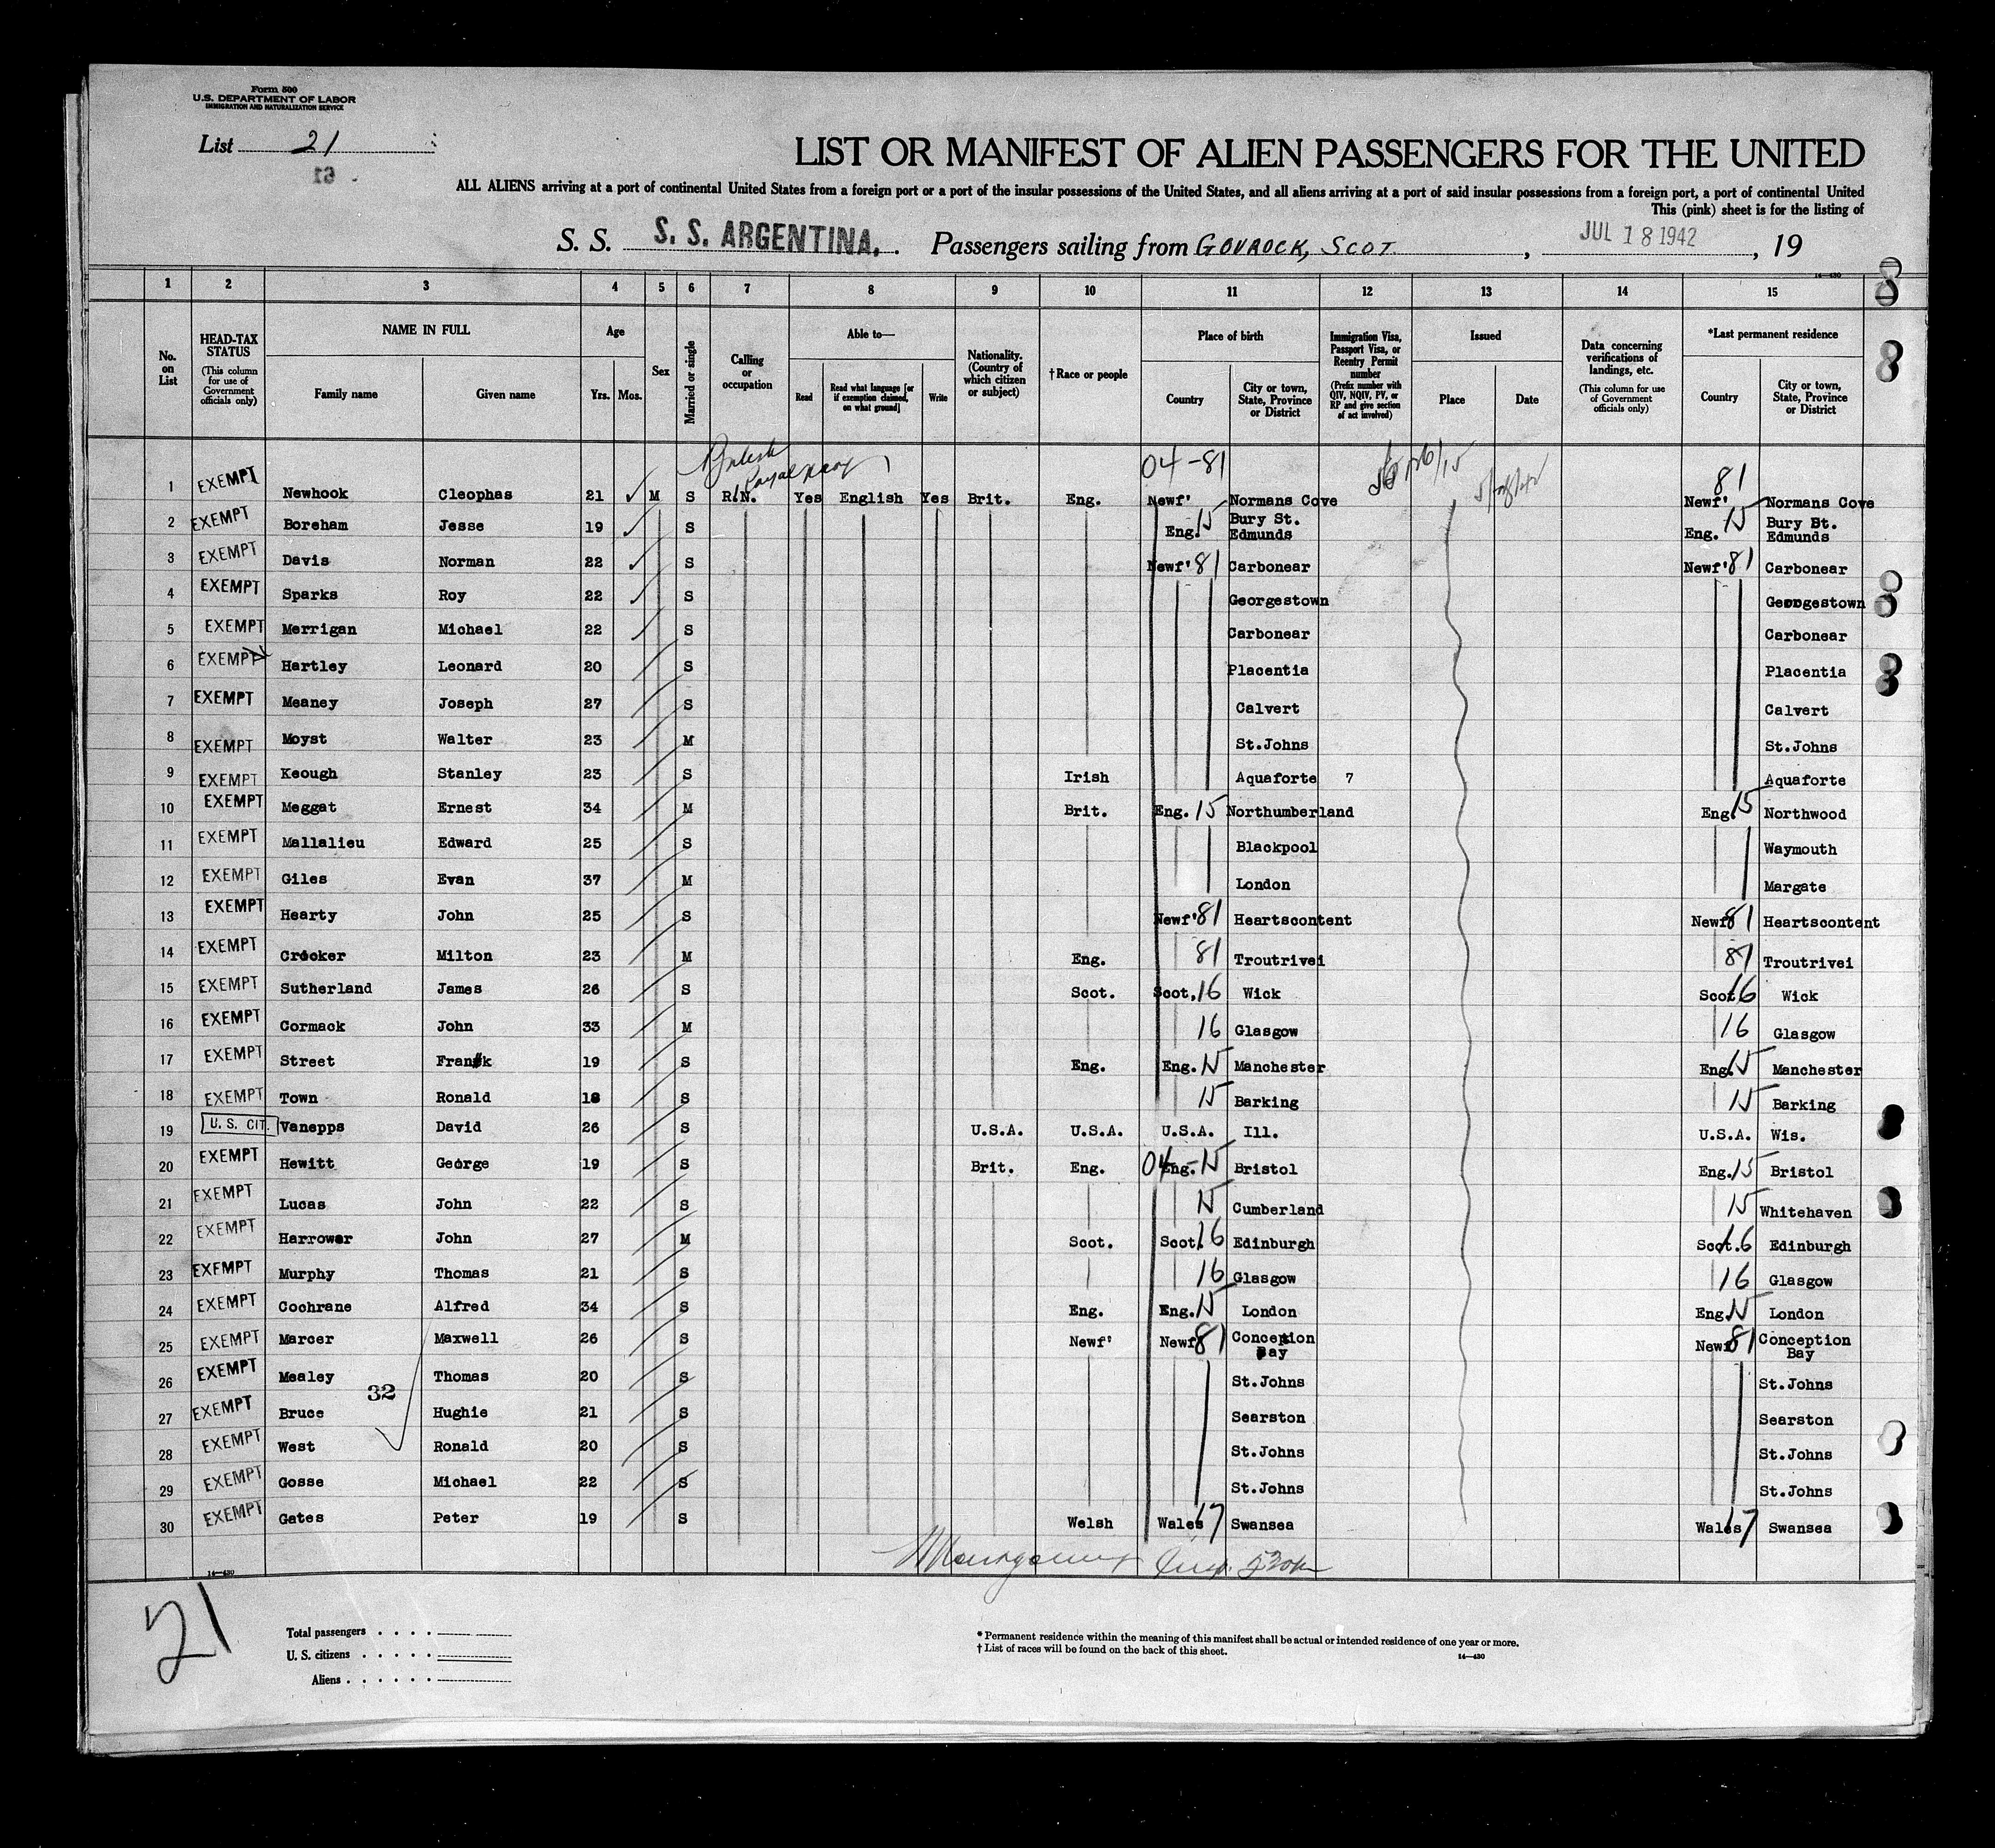 Form 500
U.S. DEPARTMENT OF LABOR
IMMIGRATION AND NATURALIZATION SERVICE
List 21
LIST OR MANIFEST OF ALIEN PASSENGERS FOR THE UNITED
ALL ALIENS arriving at a port of continental United States from a foreign port or a port of the insular possessions of the United States, and all aliens arriving at a port of said insular possessions from a foreign port, a port of continental United
This (pink) sheet is for the listing of
S. S. S. S. ARGENTINA. Passengers sailing from GOUROCK, SCOT. , JUL 18 1942 , 19
14-430
1 2 3 4 5 6 7 8 9 10 11 12 13 14 15
No. on List
HEAD-TAX STATUS (This column for use of Government officials only)
NAME IN FULL
Family name Given name
Age
Yrs. Mos.
Sex
Married or single
Calling or occupation
Able to—
Read
Read what language [or if exemption claimed, on what ground]
Write
Nationality. (Country of which citizen or subject)
†Race or people
Place of birth
Country
City or town, State, Province or District
Immigration Visa, Passport Visa, or Reentry Permit number (Prefix number with QIV, NQIV, PV, or RP and give section of act involved)
Issued
Place Date
Data concerning verifications of landings, etc. (This column for use of Government officials only)
*Last permanent residence
Country
City or town, State, Province or District
British Royal Navy
04-81
1 EXEMPT Newhook Cleophas 21 M S R.N. Yes English Yes Brit. Eng. Newf' Normans Cove 81 Newf' Normans Cove
2 EXEMPT Boreham Jesse 19 S Eng. 15 Bury St. Edmunds Eng. 15 Bury St. Edmunds
3 EXEMPT Davis Norman 22 S Newf' 81 Carbonear Newf' 81 Carbonear
4 EXEMPT Sparks Roy 22 S Georgestown Georgestown
5 EXEMPT Merrigan Michael 22 S Carbonear Carbonear
6 EXEMPT Hartley Leonard 20 S Placentia Placentia
7 EXEMPT Meaney Joseph 27 S Calvert Calvert
8 EXEMPT Moyst Walter 23 M St.Johns St.Johns
9 EXEMPT Keough Stanley 23 S Irish Aquaforte 7 Aquaforte
10 EXEMPT Meggat Ernest 34 M Brit. Eng. 15 Northumberland Eng. 15 Northwood
11 EXEMPT Mallalieu Edward 25 S Blackpool Waymouth
12 EXEMPT Giles Evan 37 M London Margate
13 EXEMPT Hearty John 25 S Newf' 81 Heartscontent Newf' 81 Heartscontent
14 EXEMPT Crocker Milton 23 M Eng. 81 Troutrivei 81 Troutrivei
15 EXEMPT Sutherland James 26 S Scot. Scot. 16 Wick Scot. 16 Wick
16 EXEMPT Cormack John 33 M 16 Glasgow 16 Glasgow
17 EXEMPT Street Frank 19 S Eng. Eng. 15 Manchester Eng. 15 Manchester
18 EXEMPT Town Ronald 18 S 15 Barking 15 Barking
19 U. S. CIT. Vanepps David 26 S U.S.A. U.S.A. U.S.A. Ill. U.S.A. Wis.
20 EXEMPT Hewitt George 19 S Brit. Eng. 04 Eng.-15 Bristol Eng. 15 Bristol
21 EXEMPT Lucas John 22 S 15 Cumberland 15 Whitehaven
22 EXEMPT Harrower John 27 M Scot. Scot. 16 Edinburgh Scot. 16 Edinburgh
23 EXEMPT Murphy Thomas 21 S 16 Glasgow 16 Glasgow
24 EXEMPT Cochrane Alfred 34 S Eng. Eng. 15 London Eng. 15 London
25 EXEMPT Marcer Maxwell 26 S Newf' Newf' 81 Conception Bay Newf' 81 Conception Bay
26 EXEMPT Mealey Thomas 20 S St.Johns St.Johns
32
27 EXEMPT Bruce Hughie 21 S Searston Searston
28 EXEMPT West Ronald 20 S St.Johns St.Johns
29 EXEMPT Gosse Michael 22 S St.Johns St.Johns
30 EXEMPT Gates Peter 19 S Welsh Wales 17 Swansea Wales 17 Swansea
14-430
21
Total passengers
U. S. citizens
Aliens
* Permanent residence within the meaning of this manifest shall be actual or intended residence of one year or more.
† List of races will be found on the back of this sheet.
14-430